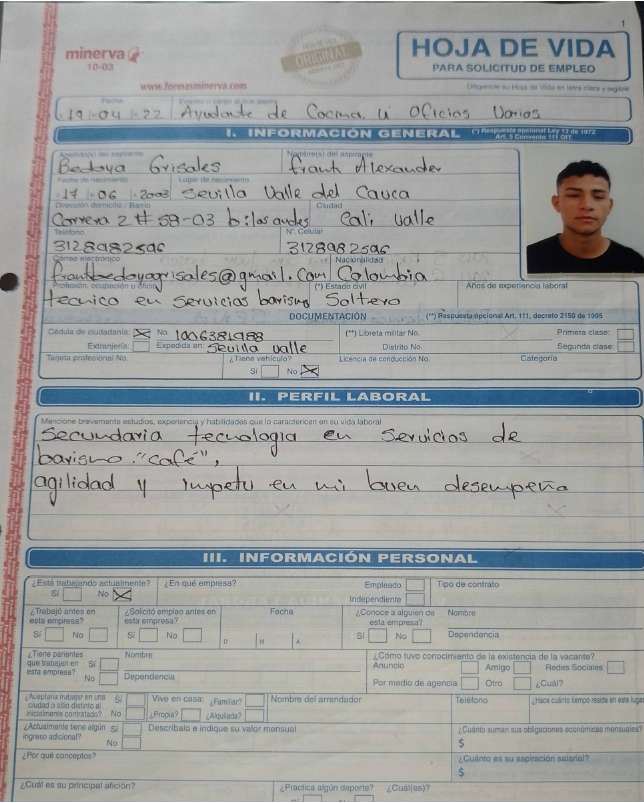 1
minerva
10-03
HOJA DE VIDA ORIGINAL MINERVA 10-03
HOJA DE VIDA
PARA SOLICITUD DE EMPLEO
www.formasminerva.com
Diligencie su Hoja de Vida en letra clara y legible
Fecha Empleo o cargo al que aspira
19 04 22 Ayudante de Cocina ú Oficios Varios
I. INFORMACIÓN GENERAL (*) Respuesta opcional Ley 13 de 1972
Art. 5 Convenio 111 OIT.
Apellido(s) del aspirante Nombre(s) del aspirante
Bedoya Grisales frank Alexander
Fecha de nacimiento Lugar de nacimiento
17 06 2003 Sevilla Valle del Cauca
Dirección domicilio / Barrio Ciudad
Carrera 2 # 58-03 b: los andes Cali, valle
Teléfono N°. Celular
3128982596 3128982596
Correo electrónico Nacionalidad
frankbedoyagrisales@gmail.com Colombia
Profesión, ocupación u oficio (*) Estado civil Años de experiencia laboral
tecnico en servicios barismo Soltero
DOCUMENTACIÓN (**) Respuesta opcional Art. 111, decreto 2150 de 1995
Cédula de ciudadanía: No. 1006381988 (**) Libreta militar No. Primera clase:
Extranjería: Expedida en: Sevilla valle Distrito No. Segunda clase:
Tarjeta profesional No. ¿Tiene vehículo? Licencia de conducción No. Categoría
Sí No X
II. PERFIL LABORAL
Mencione brevemente estudios, experiencia y habilidades que lo caractericen en su vida laboral
Secundaria tecnologia en servicios de
barismo "café",
agilidad y impetu en mi buen desempeño
III. INFORMACIÓN PERSONAL
¿Está trabajando actualmente? ¿En qué empresa? Empleado Tipo de contrato
Sí No X Independiente
¿Trabajó antes en ¿Solicitó empleo antes en Fecha ¿Conoce a alguien de Nombre
esta empresa? esta empresa? esta empresa?
Sí No Sí No D M A Sí No Dependencia
¿Tiene parientes Nombre ¿Cómo tuvo conocimiento de la existencia de la vacante?
que trabajan en Sí Anuncio Amigo Redes Sociales
esta empresa? No Dependencia Por medio de agencia Otro ¿Cuál?
¿Aceptaría trabajar en una Sí Vive en casa: ¿Familiar? Nombre del arrendador Teléfono ¿Hace cuánto tiempo reside en este lugar
ciudad o sitio distinto al
inicialmente contratado? No ¿Propia? ¿Alquilada?
¿Actualmente tiene algún Sí Descríbalo e indique su valor mensual ¿Cuánto suman sus obligaciones económicas mensuales?
ingreso adicional? No $
¿Por qué conceptos? ¿Cuánto es su aspiración salarial?
$
¿Cuál es su principal afición? ¿Practica algún deporte? ¿Cuál(es)?